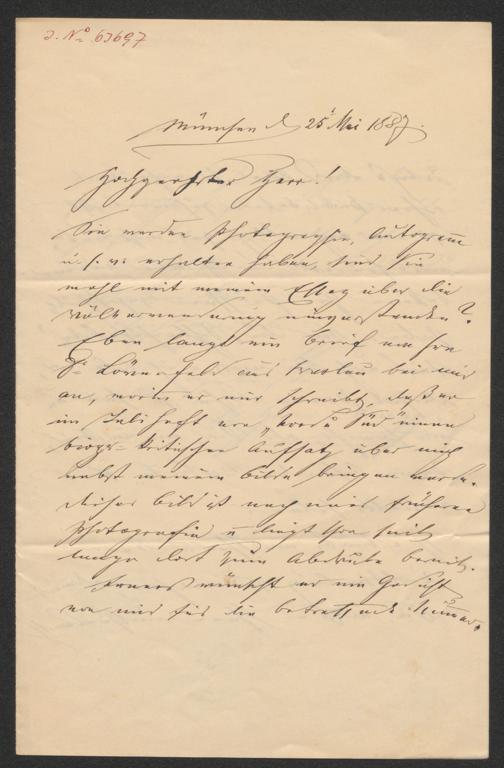 J. No. 63697
München d. 25t Mai 1887.
Hochgeehrter Herr!
Sie werden Photographie, Autogramm
u. s. w. erhalten haben, sind Sie
wohl mit meinem Essay über die
Völkerwanderung einverstanden?
Eben langt ein Brief von Hrn
Dr Löwenfeld aus Breslau bei mir
an, worin er mir schreibt, daß er
im Juliheft von „Nord u Süd" einen
biogr.-kritischen Aufsatz über mich
nebst meinem Bilde bringen werde.
Dieses Bild ist nach einer früheren
Photographie u liegt schon seit
lange dort zum Abdrucke bereit.
Ferner wünscht er ein Gedicht
von mir für die betreffende Nummer.